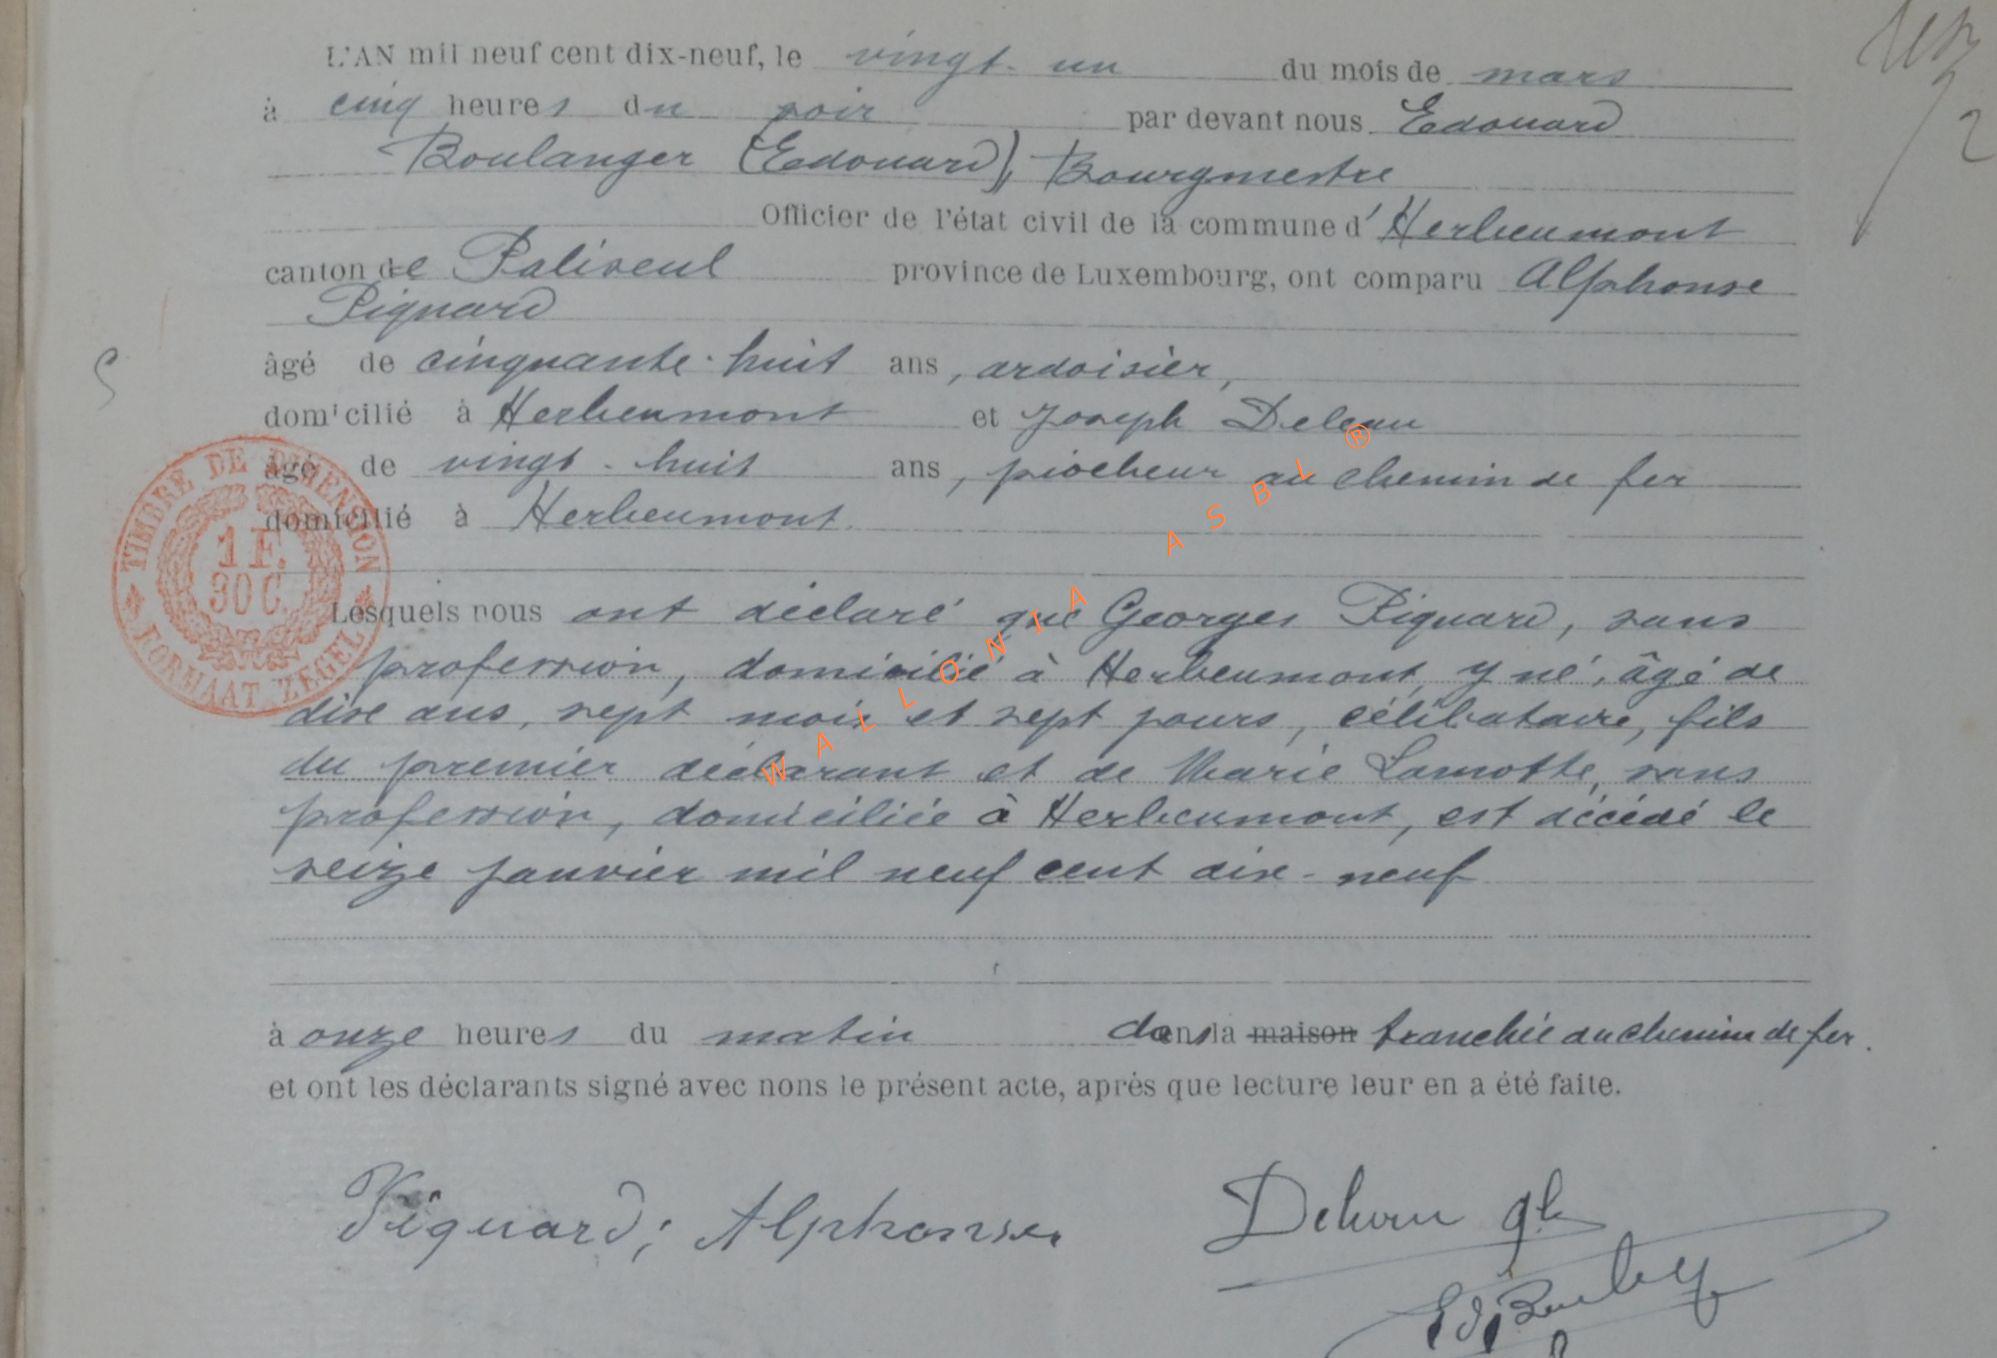 L'AN mil neuf cent dix-neuf, le vingt-un du mois de mars
à cinq heures du soir par devant nous Edouard
Boulanger (Edouard), Bourgmestre
Officier de l'état civil de la commune d'Herbeumont
canton de Paliseul province de Luxembourg, ont comparu Alphonse
Piquard
âgé de cinquante-huit ans, ardoisier,
domicilié à Herbeumont et Joseph
âgé de vingt-huit ans, piocheur au chemin de fer
domicilié à Herbeumont.
Lesquels nous ont déclaré que Georges Piquard, sans
profession, domicilié à Herbeumont, y né, âgé de
dix ans, sept mois et sept jours, célibataire, fils
du premier déclarant et de Marie Lamotte, sans
profession, domiciliée à Herbeumont, est décédé le
seize janvier mil neuf cent dix-neuf
à onze heures du matin dans la maison tranchée du chemin de fer.
et ont les déclarants signé avec nons le présent acte, après que lecture leur en a été faite.
Piquard, Alphonse.
TIMBRE DE DIMENSION
1 F.
30 C.
FORMAAT ZEGEL
WALLONIA ASBL ®